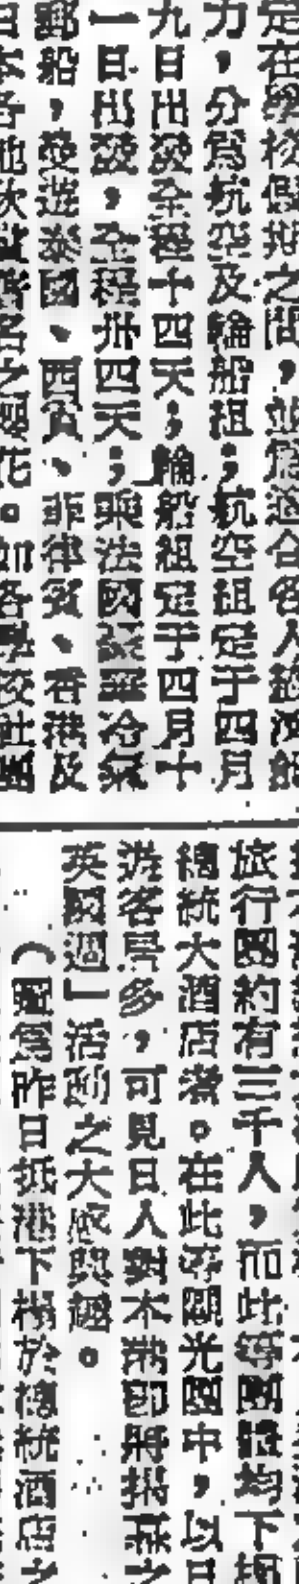 定在學校假期之間，並為適合各人經濟能
力，分為航空及輪船組；航空組定于四月
九日出發全程十四天；輪船組定于四月十
一日出發，全程卅四天；乘法國豪華冷氣
郵船，暢遊泰國、西貢、菲律賓、香港及
日本各地欣賞著名之櫻花。如各學校社團
旅行團約有三千人，而此等團體均下榻
總統大酒店者。在此等觀光團中，以日
遊客居多，可見日人對本港即將揭幕之
英國週」活動之大感興趣。
（圖為昨日抵港下榻於總統酒店之